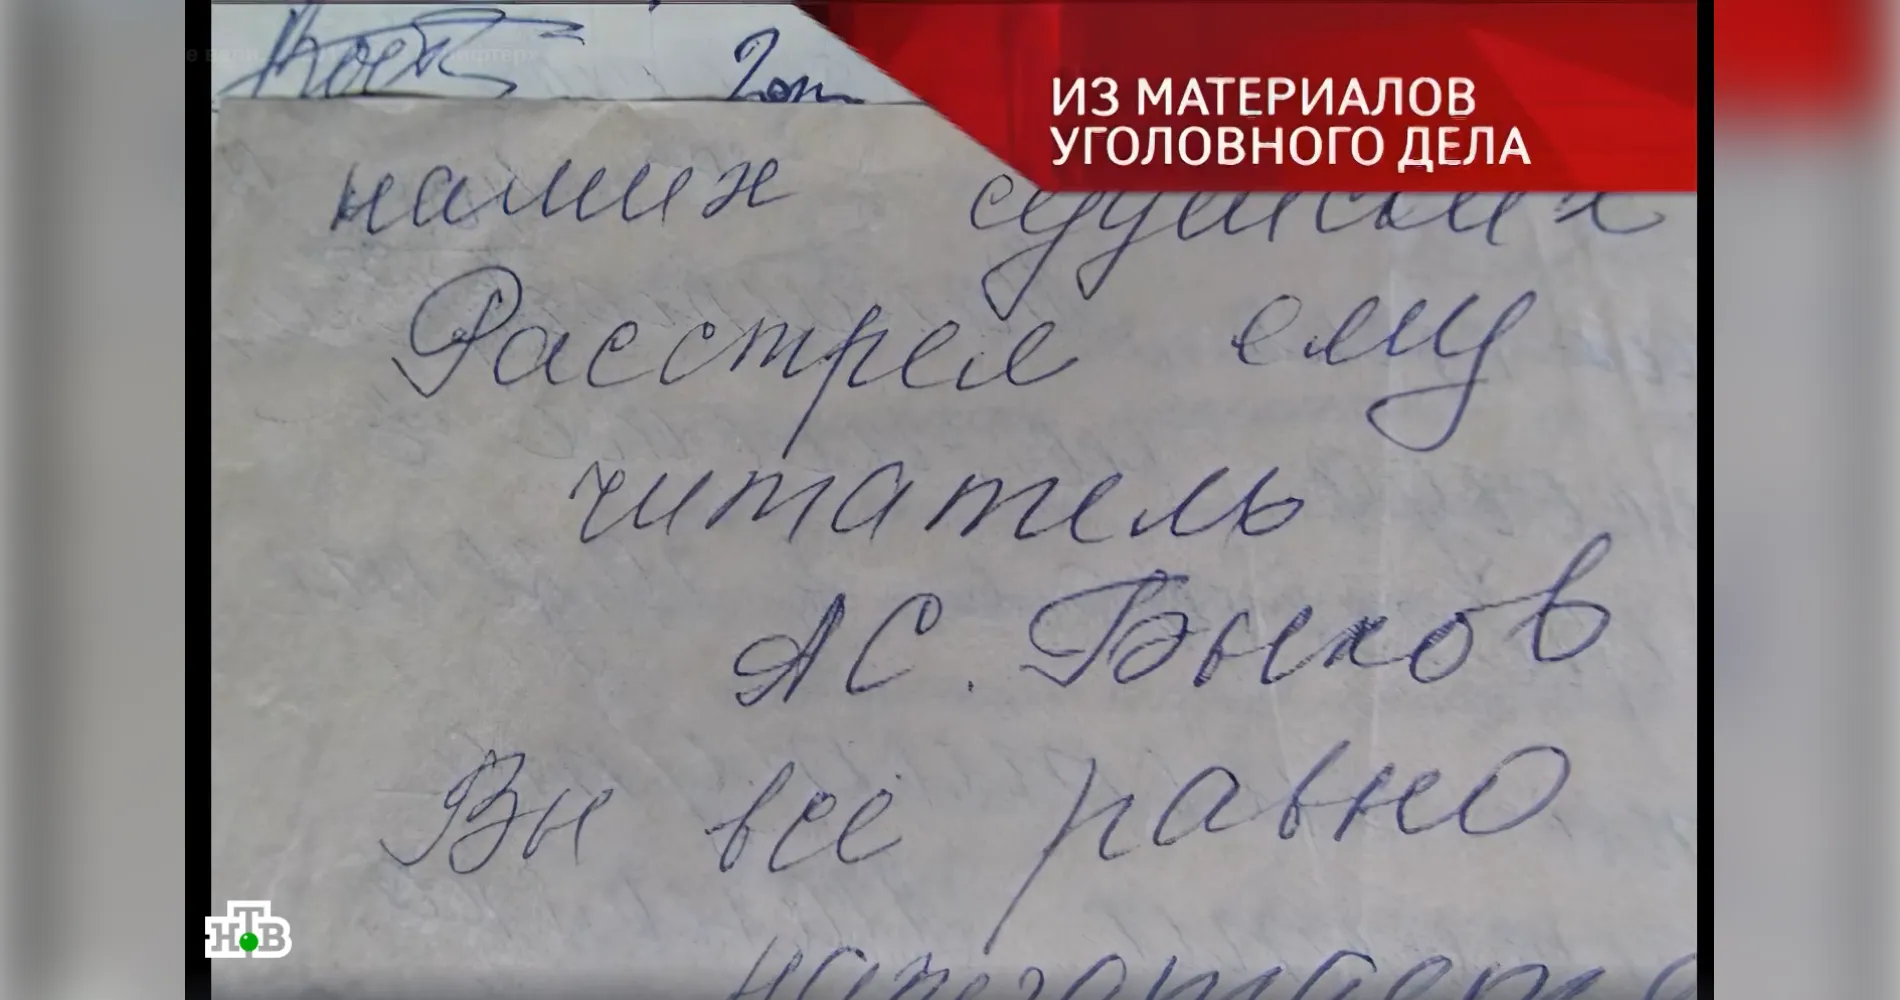 ИЗ МАТЕРИАЛОВ
УГОЛОВНОГО ДЕЛА
наших
Расстрел ему
читатель
АС. Быков
Вы всё равно
НТВ